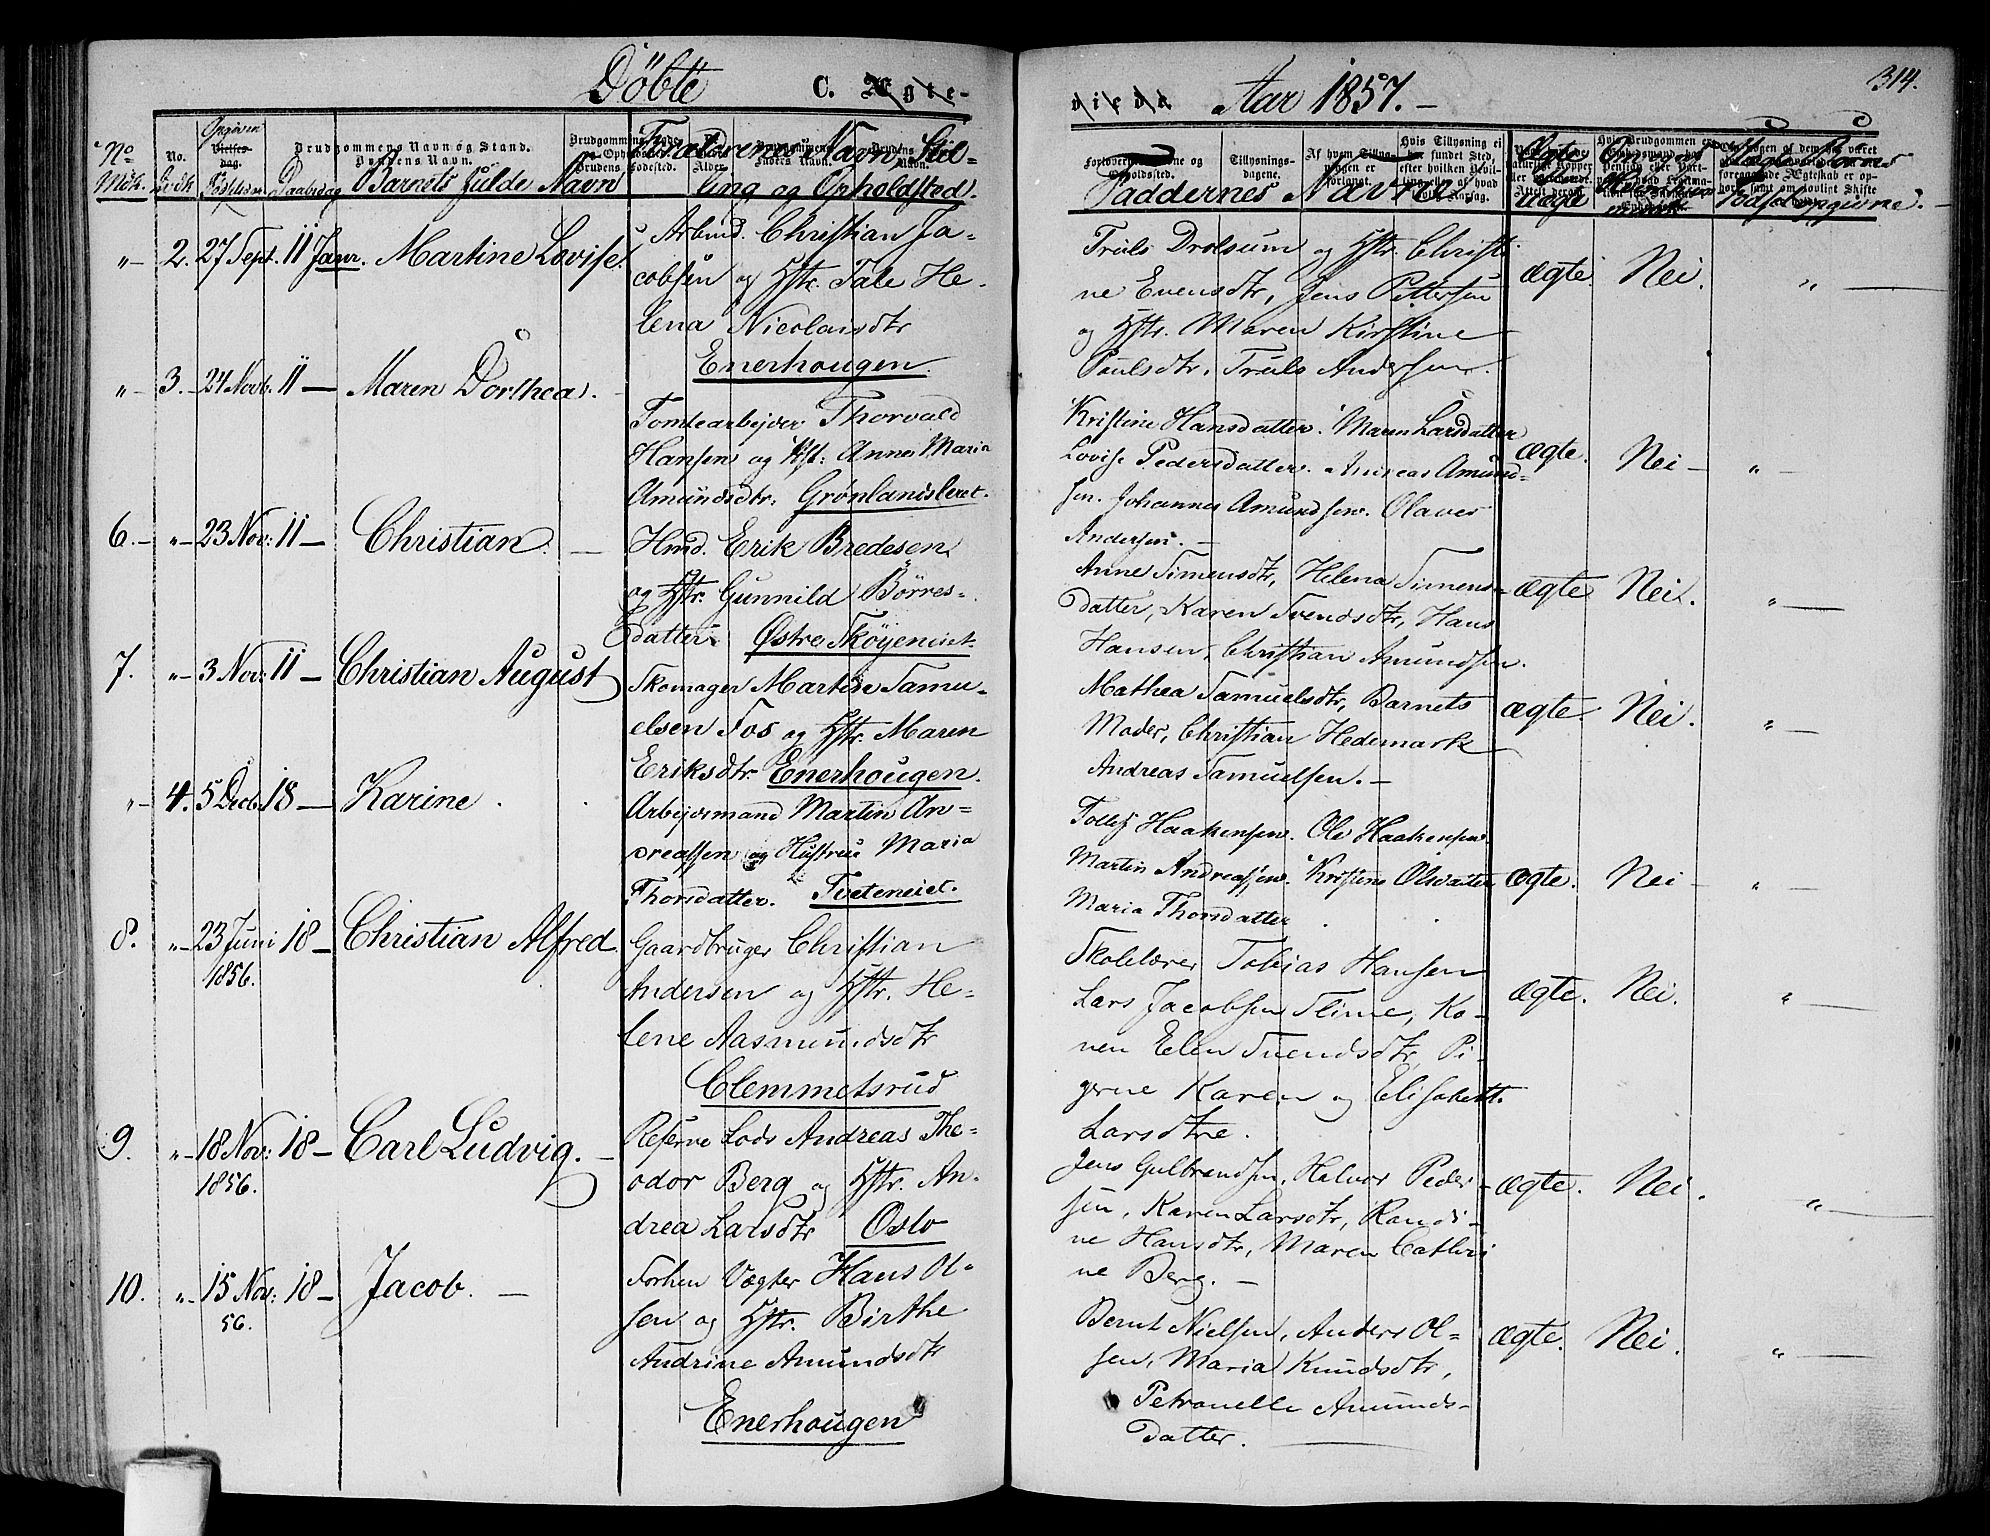 Döbte C. Ægte-
viede. Aar 1857.-
314.
No Mdk.
No. Qvdk
Opgiven Födselsdag
Daabsdag
Barnets fulde Navn
Forældrenes Navn, Stil-
ling og Opholdsted.
Faddernes Navne
Ægte eller uægte
Tillysnings-
dagene.
"- 2. 27 Sept. 11 Janr. Martine Lovise.
Arbmd. Christian Ja-
cobsen og Hstr. Tale He-
lena Nicolaisdtr
Enerhougen.
Truls Drolsum og Hstr. Christi-
ne Evensdtr, Jens Pettersen
og Hstr. Maren Kirstine
Paulsdtr, Truls Andersen.
ægte. Nei. "-
"- 3. 24 Novb. 11- Maren Dorthea.
Tomtearbejder Thorvald
Hansen og Hst: Anne Maria
Amundsdtr. Grönlandsleret.
Kristine Hansdatter. Maren Larsdatter
Lovise Pedersdatter. Andreas Amund-
sen. Johannes Amundsen. Olaves
Andersen.-
ægte. Nei- "-
6.- "- 23 Nov: 11- Christian.-
Hmd. Erik Bredesen
og Hstr. Gunnild Börres-
datter Østre Sköyeneiet.
Anne Simensdtr, Helena Simens-
datter, Karen Svendsdtr, Hans
Hansen, Christian Amundsen.
ægte Nei. "-
7. "- 3 Nov: 11- Christian August
Skomager Martin Samu-
elsen Fos og Hstr. Maren
Eriksdtr Enerhougen.
Mathea Samuelsdtr, Barnets
Moder, Christian Hedemark
Andreas Samuelsen.-
ægte. Nei. "-
"- 4. 5 Decb. 18- Karine.
Arbejdsmand Martin An-
dreassen og Hustrue Maria
Thorsdatter. Tveteneiet.
Tollef Haakensen. Ole Haakensen.
Martin Andreassen. Kristine Olsdatter
Maria Thorsdatter.
ægte. Nei- "-
8. "- 23 Juni 18- Christian Alfred
1856.
Gaardbruger Christian
Andersen og Hstr. He-
lene Aasmundsdtr
Clemmetsrud
Skolelærer Tobias Hansen
Lars Jacobsen Slime, Ko-
nen Elen Svendsdtr, Pi-
gerne Karen og Elisabeth
Larsdtre.
ægte. Nei. "-
9. "- 18 Nov: 18- Carl Ludvig.-
1856.
Reserve Lods Andreas The-
odor Berg og Hstr. An-
drea Larsdtr Oslo
Jens Gulbrandsen, Halvor Peder-
sen, Karen Larsdtr, Randi-
ne Hansdtr, Maren Cathri
ne Berg.-
ægte. Nei. "-
10. "- 15 Nov: 18- Jacob.-
56.
Forhen Vægter Hans Ol-
sen og Hstr. Birthe
Andrine Amundsdtr
Enerhougen
Bernt Nielsen, Anders Ol-
sen, Maria Knudsdtr,
Petronelle Amunds-
datter.
ægte. Nei. "-